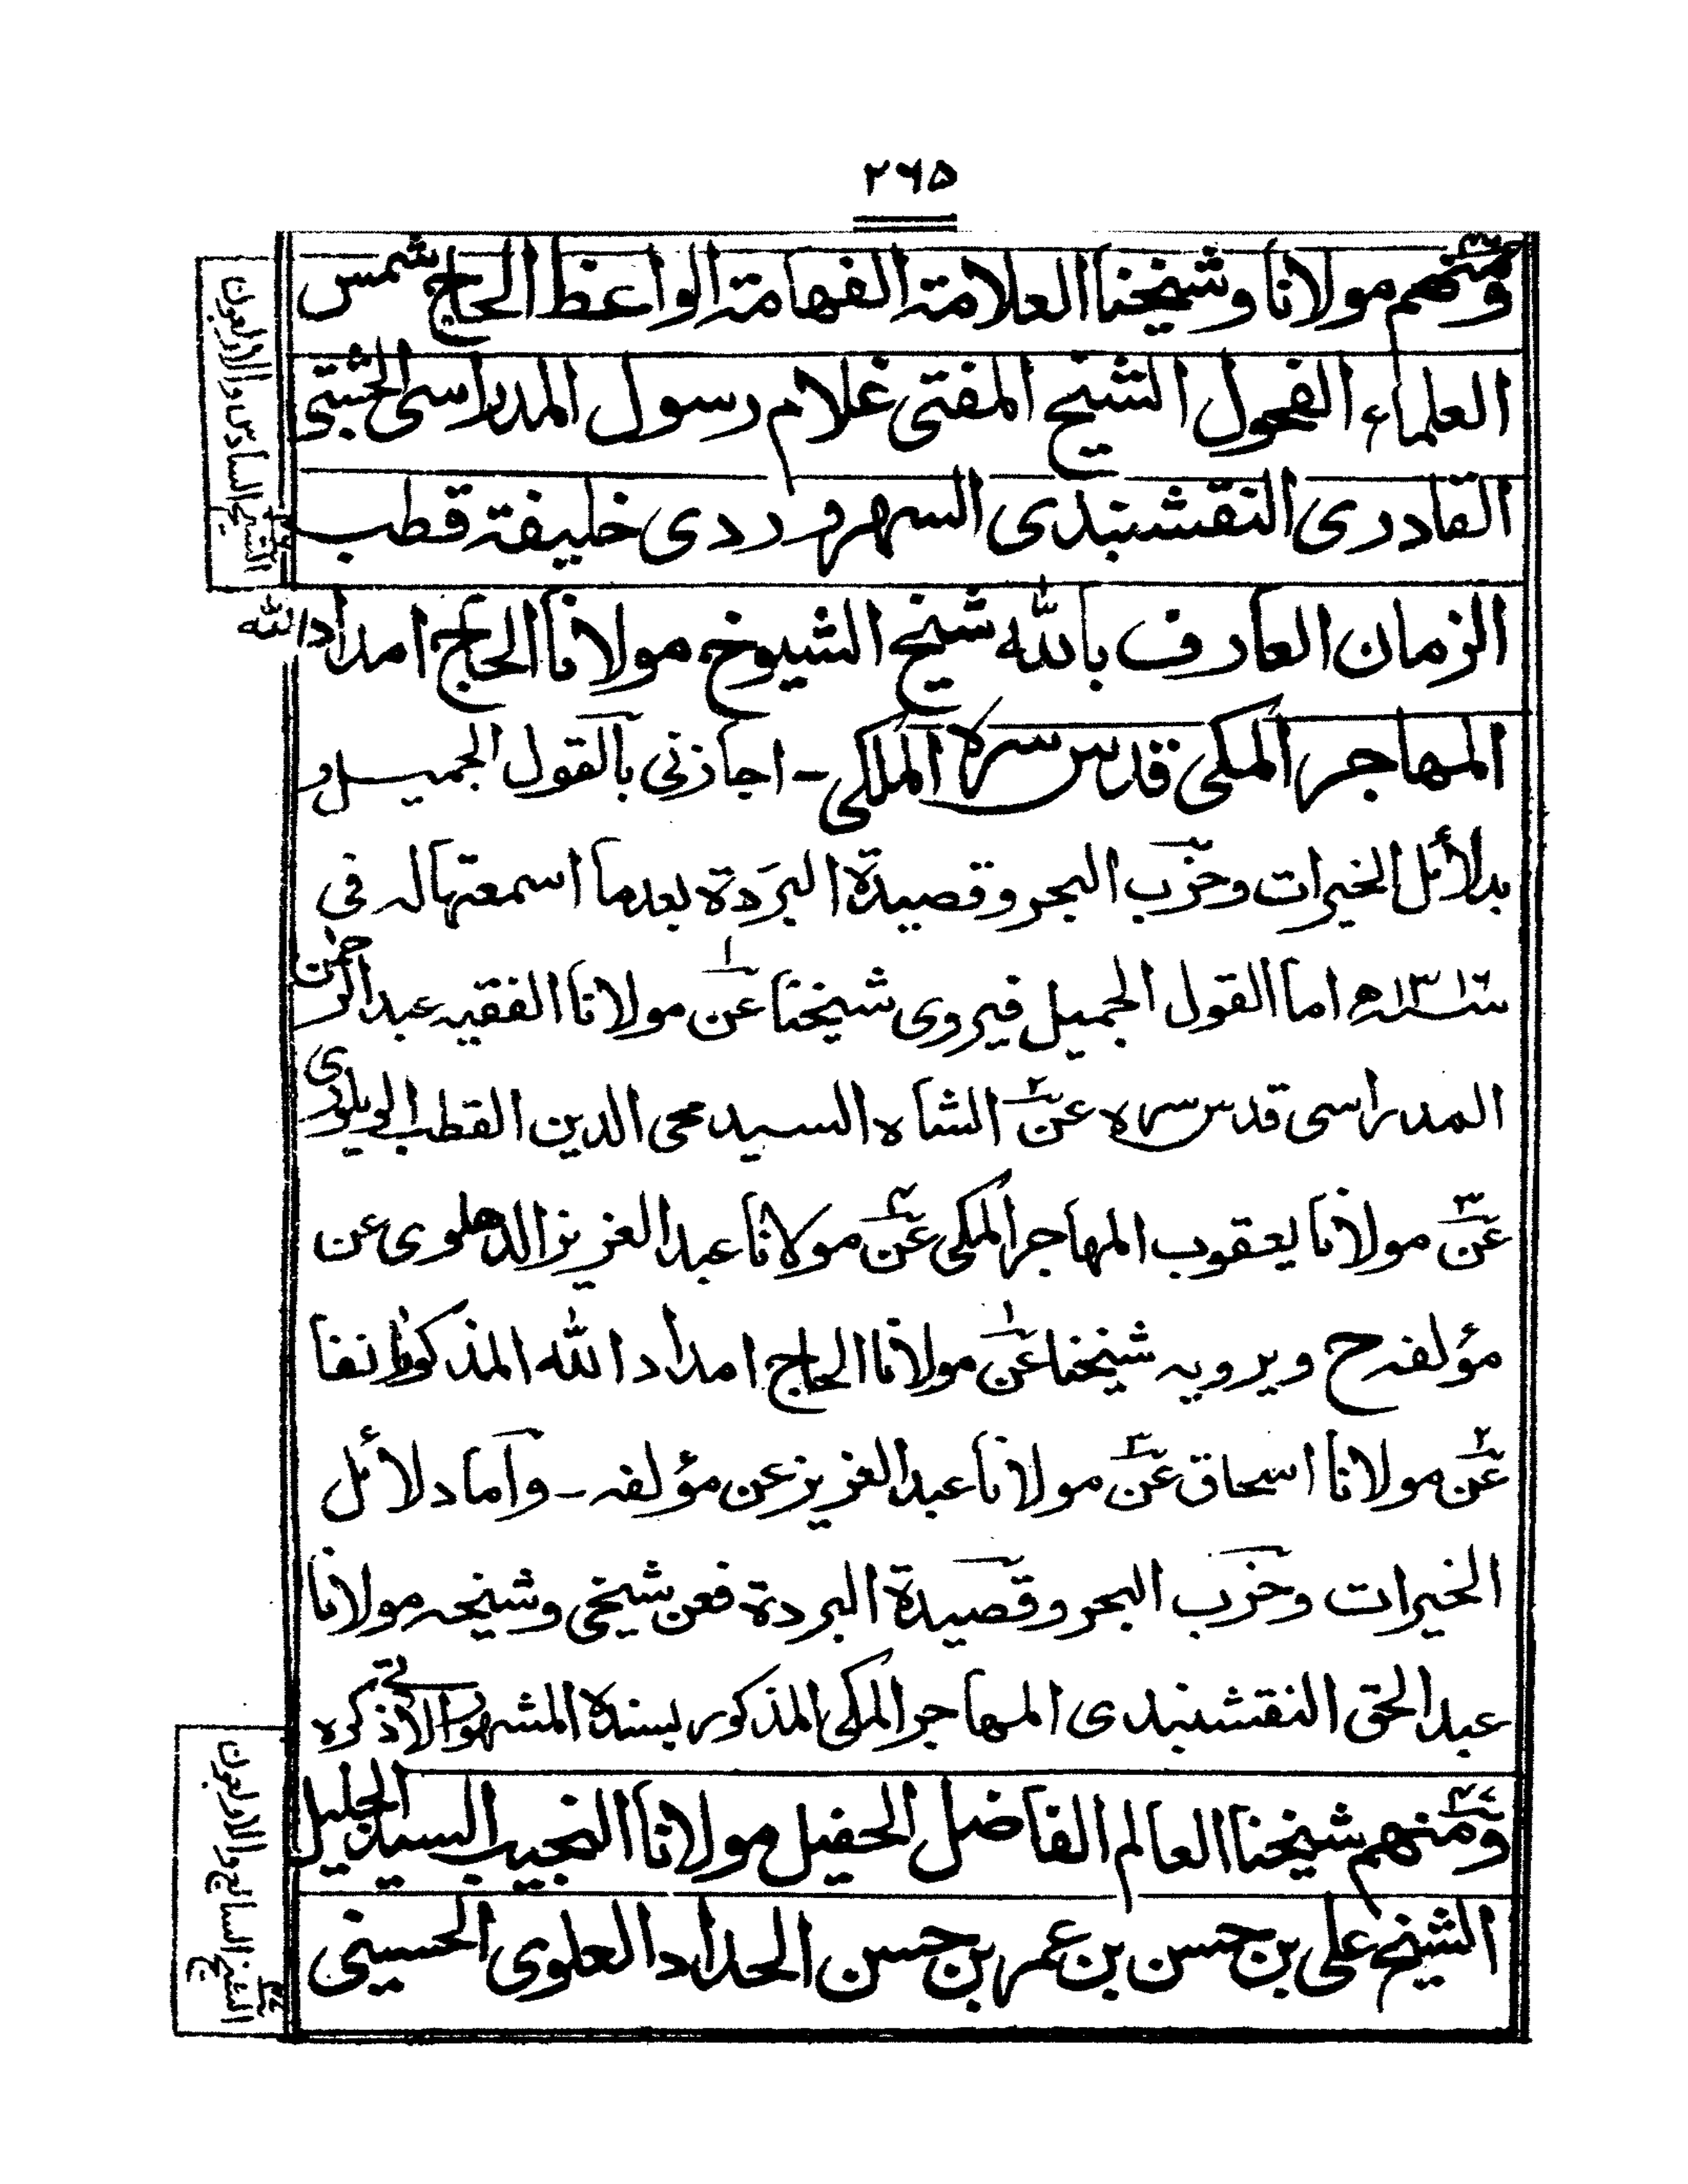 ۲۶۵
ومنهم مولانا وشيخنا العلامة الفهامة الواعظ الحاج شمس
العلماء الفحول الشيخ المفتى غلام رسول المدراسى الچشتى
القادرى النقشبندى السهروردى خليفة قطب
الزمان العارف بالله شيخ الشيوخ مولانا الحاج امداد الله
المهاجر المكى قدس سره الملكى - اجازنى بالقول الجميل و
بدلائل الخيرات وحزب البحر وقصيدة البردة بعدما اسمعتها له فى
سنة ۱۳۱٦ھ اما القول الجميل فيروى شيخنا عن ۱ مولانا الفقيه عبد الرحمن
المدراسى قدس سره عن ۲ الشاه السيد محى الدين القطب الويلورى
عن ۳ مولانا يعقوب المهاجر المكى عن ۴ مولانا عبد العزيز الدهلوى عن
مؤلفه ح ويرويه شيخنا عن ۱ مولانا الحاج امداد الله المذكور انفا
عن ۲ مولانا اسحاق عن ۳ مولانا عبد العزيز عن مؤلفه - واما دلائل
الخيرات وحزب البحر وقصيدة البردة فعن شيخى وشيخه مولانا
عبد الحق النقشبندى المهاجر المكى المذكور بسنده المشهور الآتى ذكره
ومنهم ۴۷ شيخنا العالم الفاضل الحفيل مولانا النجيب السيد الجليل
الشيخ على بن حسن بن عمر بن حسن الحداد العلوى الحسينى
الشيخ السادس والاربعون
الشيخ السابع والاربعون